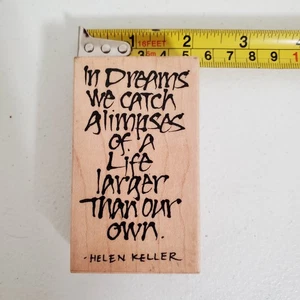 16FEET 1 2 3
In Dreams
we catch
glimpses
of a
Life
larger
Than our
own.
-HELEN KELLER